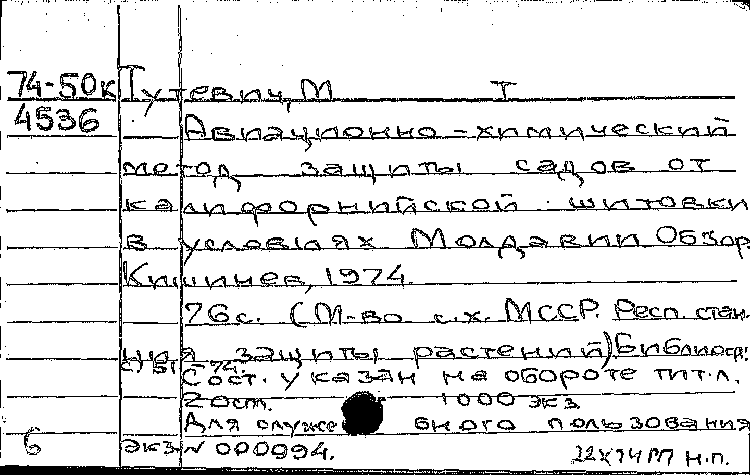 74-50к Гутевич, М Т
4536 Авиационно-химический
метод защиты садов от
калифорнийской щитовки
в условиях Молдавии Обзор.
Кишинев, 1974.
76с. (М-во с.х. МССР. Респ. стан-
ция защиты растений) Библиогр:
с. 74.
Сост. указан на обороте тит.л.
2 ост. 1000 экз
Для служебного пользования
6 экз N 000094. 22х14м н.п.